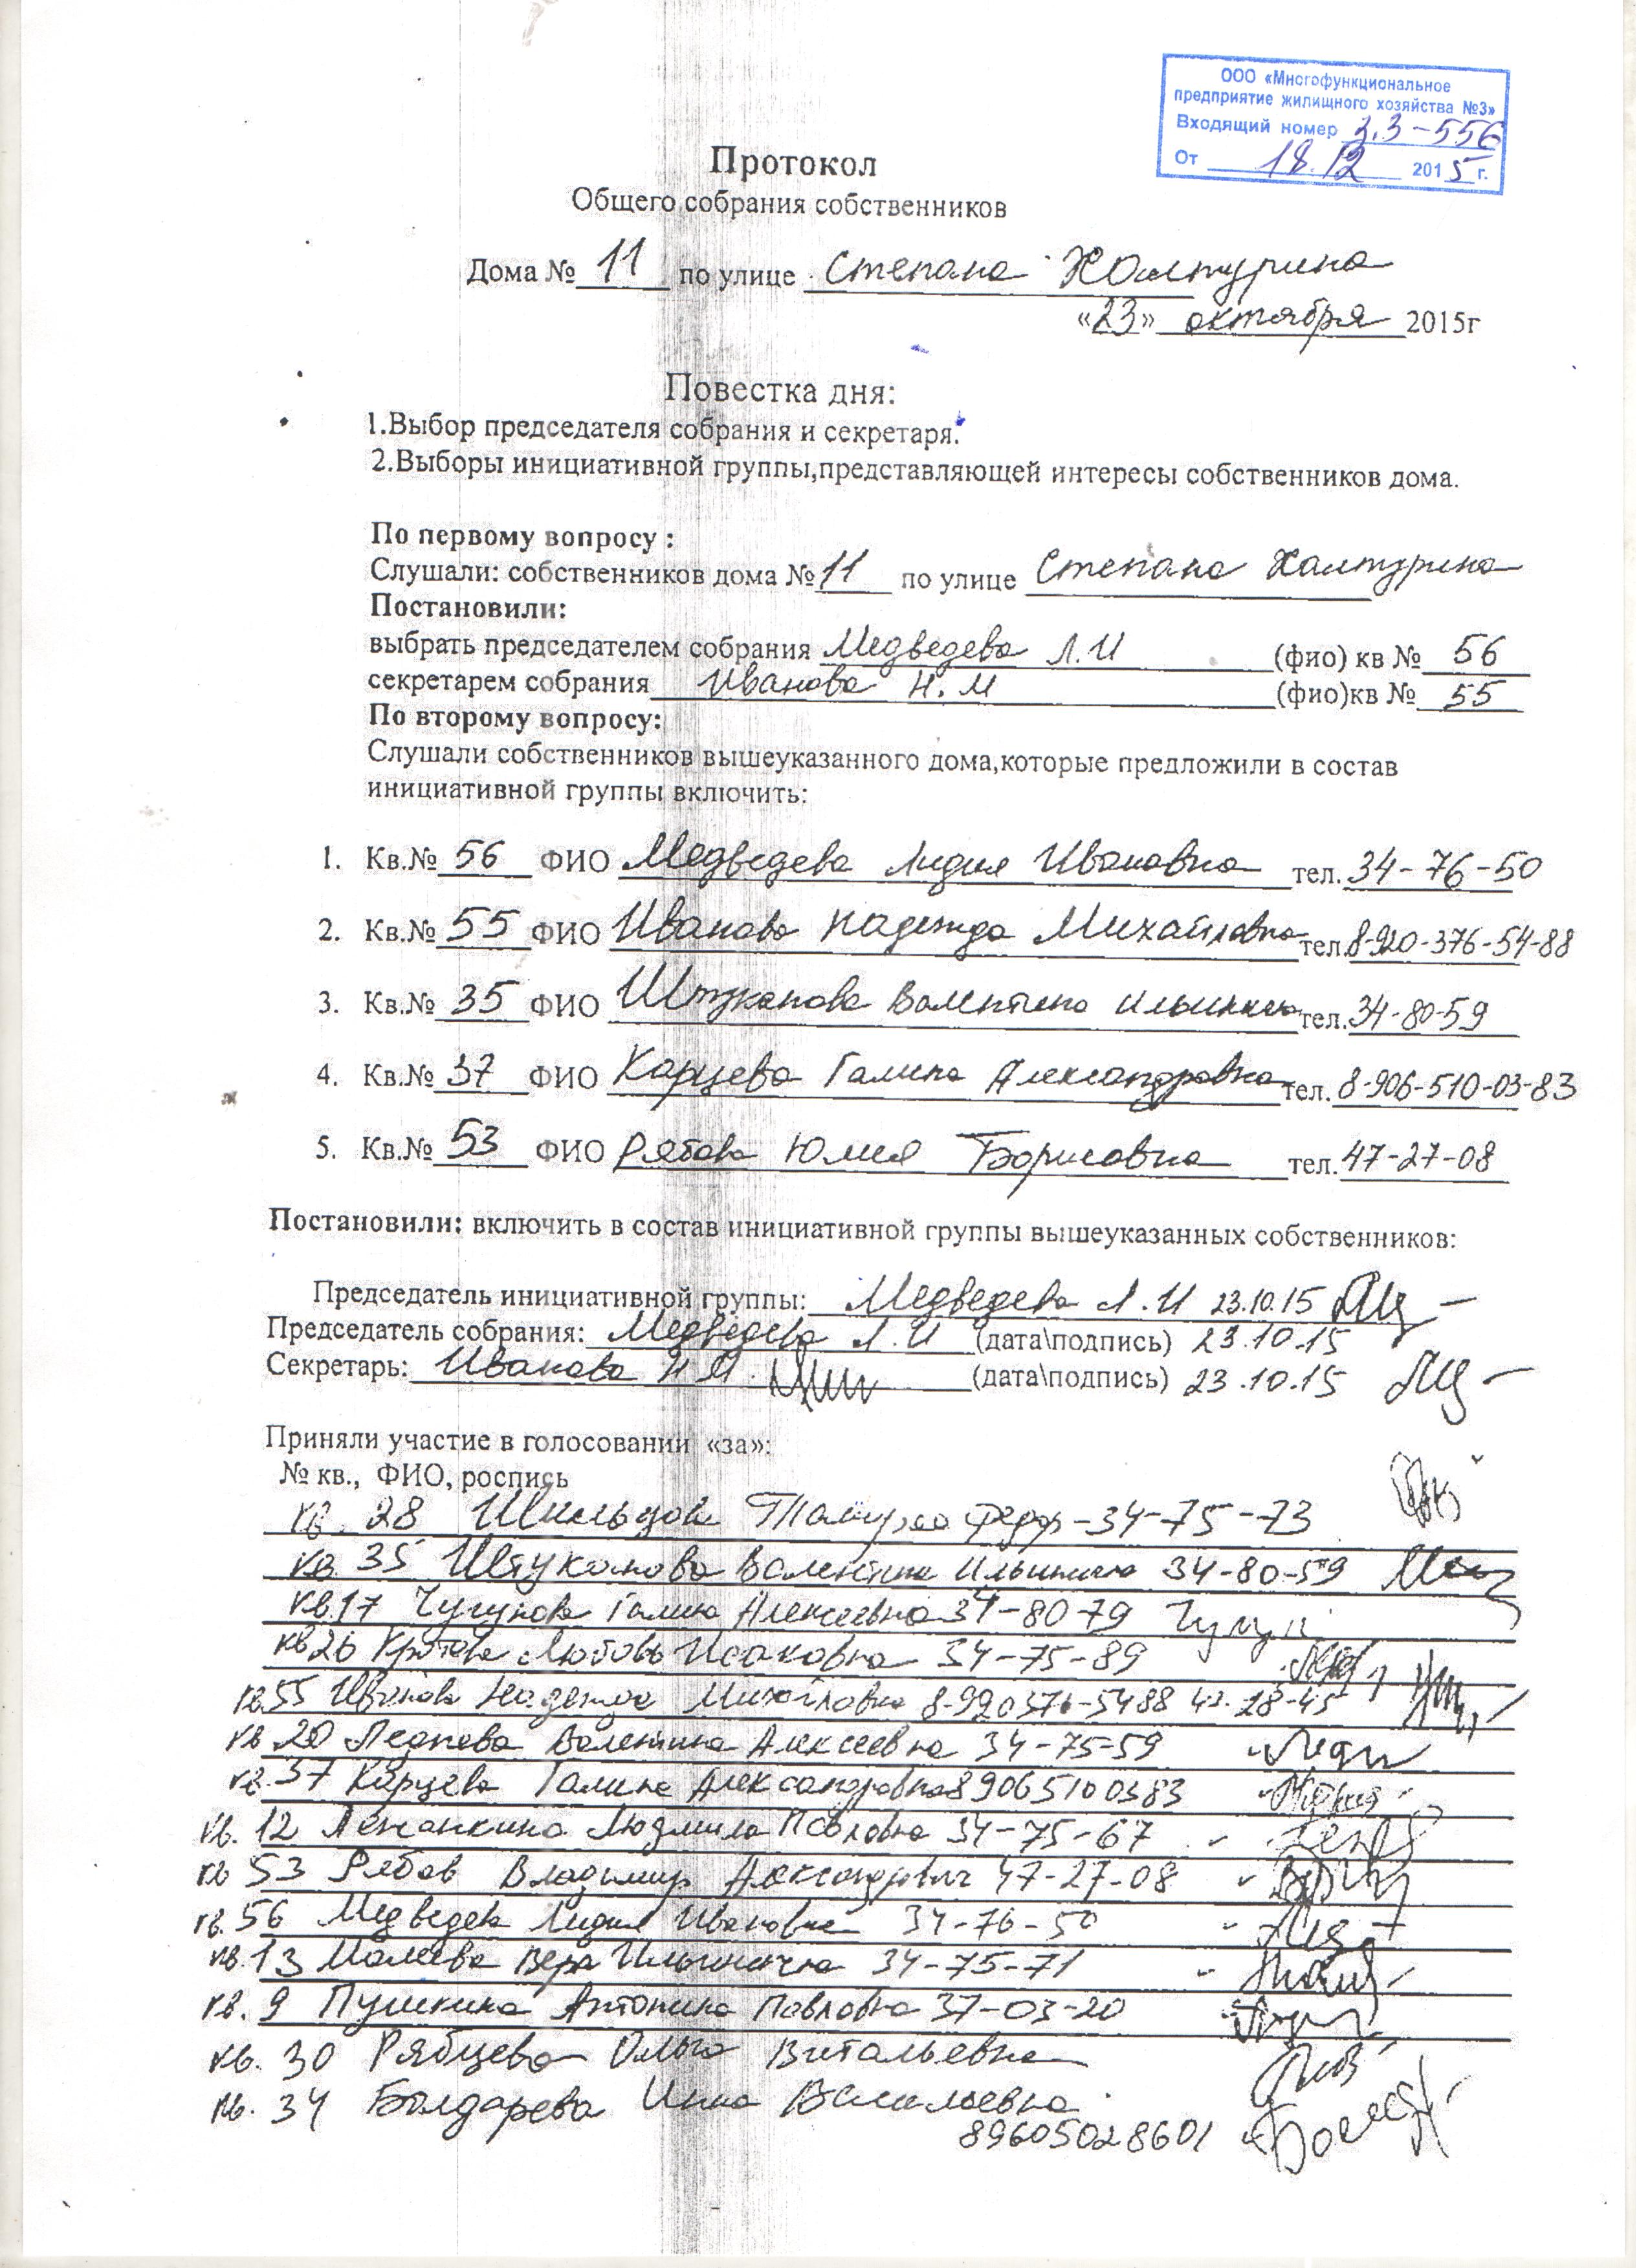 ООО «Многофункциональное
предприятие жилищного хозяйства №3»
Входящий номер 3.3-556
От 18.12 2015 г.
Протокол
Общего собрания собственников
Дома № 11 по улице Степана Халтурина
«23» октября 2015г
Повестка дня:
1.Выбор председателя собрания и секретаря.
2.Выборы инициативной группы,представляющей интересы собственников дома.
По первому вопросу :
Слушали: собственников дома № 11 по улице Степана Халтурина
Постановили:
выбрать председателем собрания Медведева Л.И (фио) кв № 56
секретарем собрания Иванова Н.М (фио)кв № 55
По второму вопросу:
Слушали собственников вышеуказанного дома,которые предложили в состав
инициативной группы включить:
1. Кв.№ 56 ФИО Медведева Лидия Ивановна тел. 34-76-50
2. Кв.№ 55 ФИО Иванова Надежда Михайловна тел. 8-920-376-54-88
3. Кв.№ 35 ФИО Штуканова Валентина Ильинична тел. 34-80-59
4. Кв.№ 37 ФИО Карцева Галина Александровна тел. 8-906-510-03-83
5. Кв.№ 53 ФИО Рябова Юлия Борисовна тел. 47-27-08
Постановили: включить в состав инициативной группы вышеуказанных собственников:
Председатель инициативной группы: Медведева Л.И 23.10.15
Председатель собрания: Медведева Л.И (дата\подпись) 23.10.15
Секретарь: Иванова Н.М. (дата\подпись) 23.10.15
Приняли участие в голосовании «за»:
№ кв., ФИО, роспись
кв. 28 - 34-75-73
кв. 35 Штуканова Валентина Ильинична 34-80-59
кв 17 Чугунова Галина Алексеевна 34-80-79
кв 26 Кротова Любовь Исаковна 34-75-89
кв. 55 Иванова Надежда Михайловна 8-920376-5488
кв 20 Валентина Алексеевна 34-75-59
кв. 37 Карцева Галина Александровна 89065100383
кв. 12 Людмила Павловна 34-75-67
кв 53 Рябов Владимир Александрович 47-27-08
кв. 56 Медведева Лидия Ивановна 34-76-50
кв. 13 Вера Ильинична 34-75-71
кв. 9 Пушкина Антонина Павловна 37-03-20
кв. 30 Рябцева Ольга Витальевна
кв. 34 Болдарева Инна Васильевна
89605028601